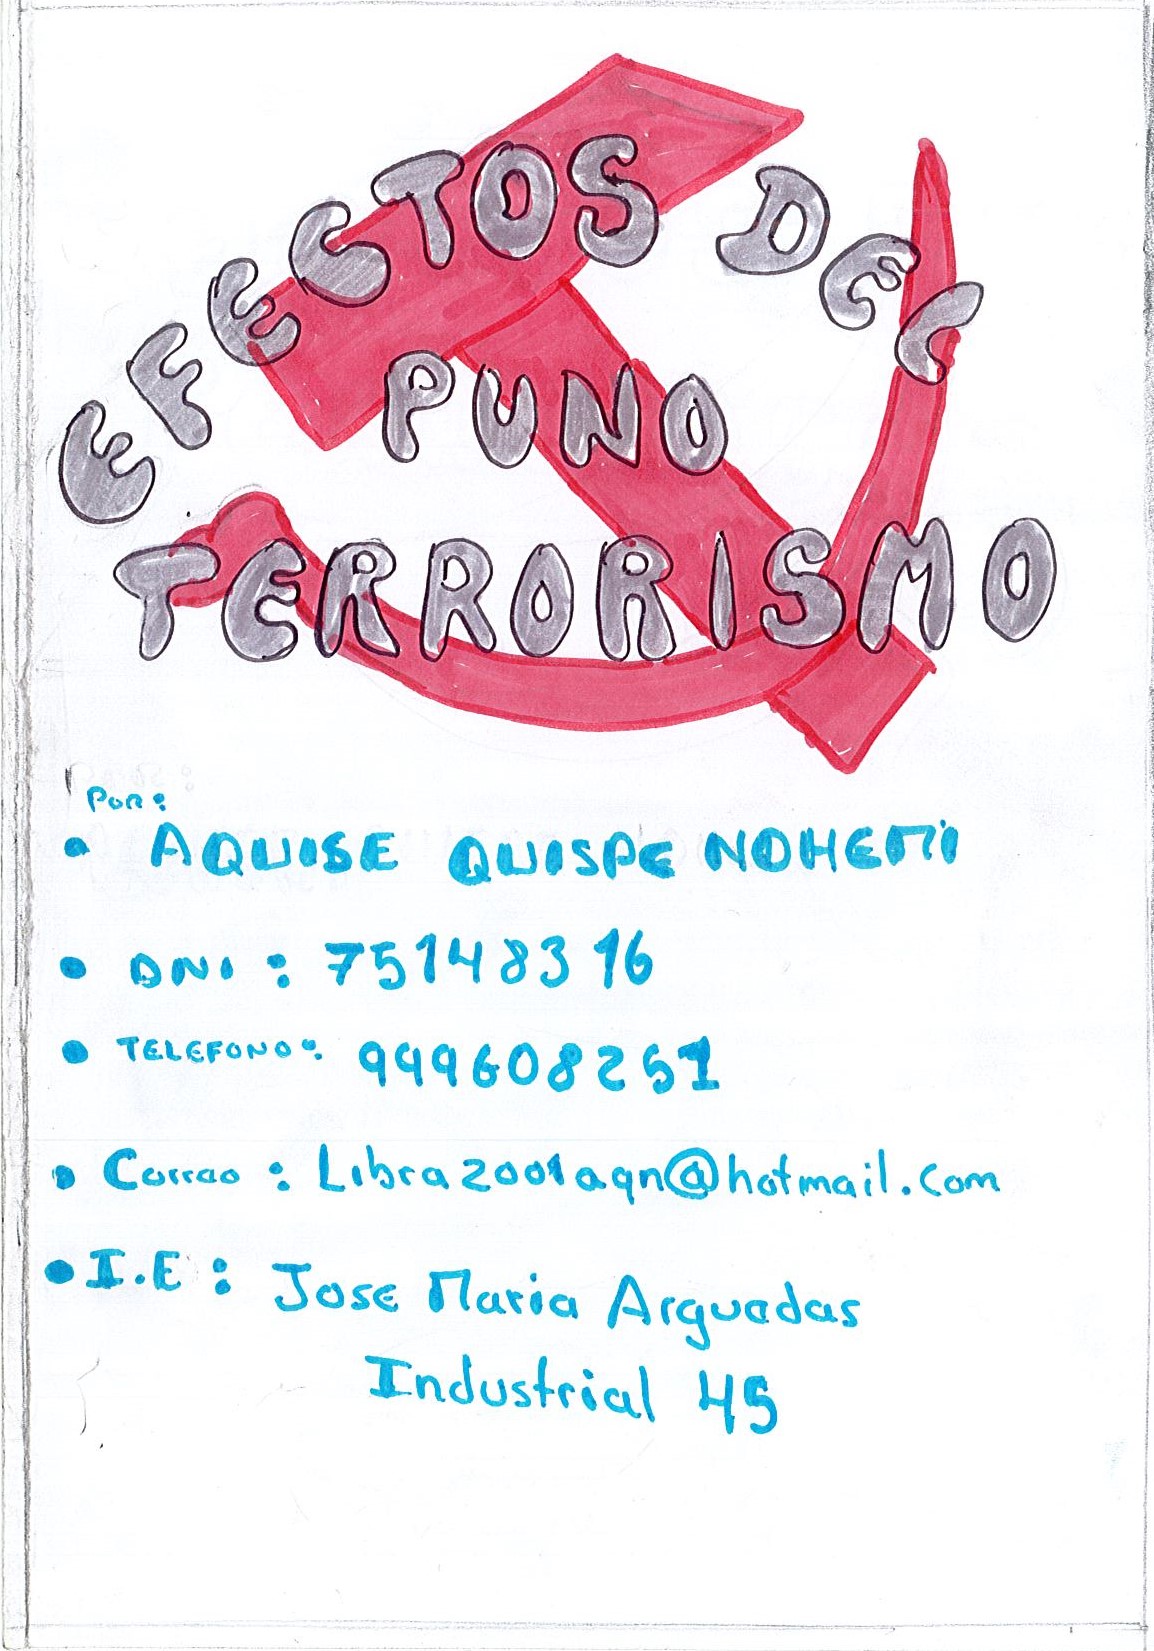 EFECTOS DEL
PUNO
TERRORISMO
Por:
• AQUISE QUISPE NOHEMI
• DNI : 75148316
• TELEFONO: 999608251
• Correo : Libra2001aqn@hotmail.com
• I.E : Jose Maria Arguedas
Industrial 45